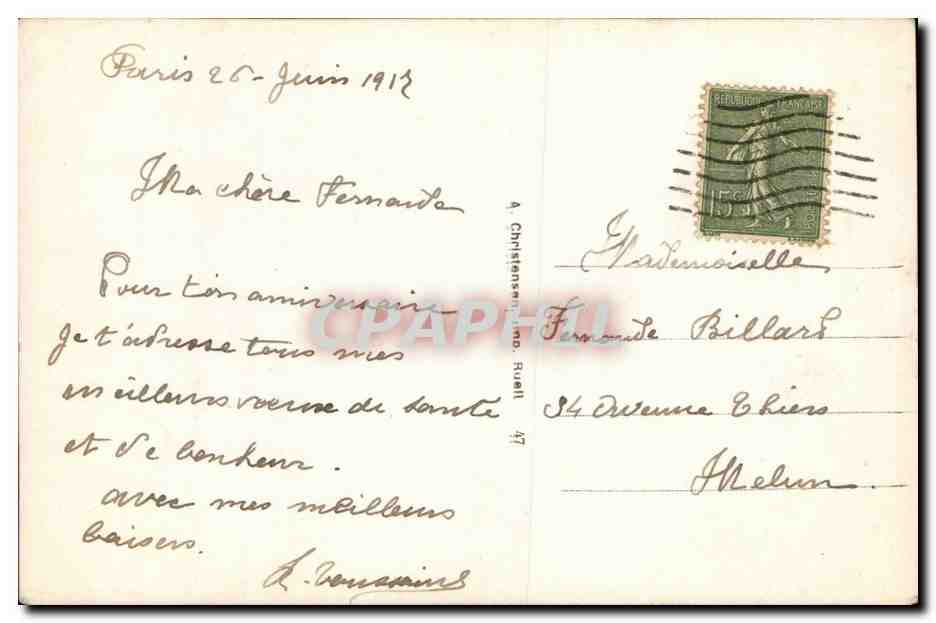 Paris 26 - Juin 1917
Ma chère Fernande
Pour ton anniversaire
je t'adresse tous mes
meilleurs voeux de santé
et de bonheur.
avec mes meilleurs
baisers.
A. Christensen, Imp. Rueil 47
REPUBLIQUE FRANÇAISE
15c
POSTES
Mademoiselle
Fernande Billard
34 Avenue Thiers
Melun.
CPAPHIL